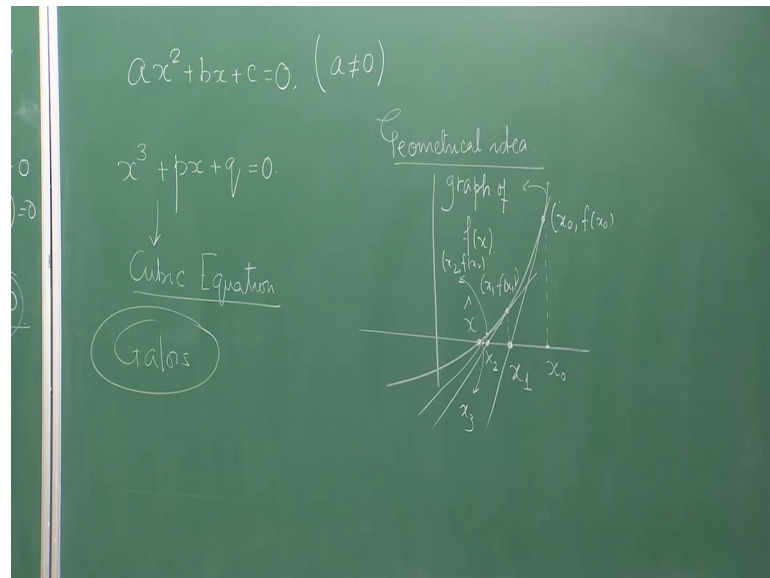 ax²+bx+c=0. (a≠0)
x³+px+q=0.
Cubic Equation
Galois
0
)=0
Geometrical idea.
graph of
f(x)
(x₀, f(x₀)
(x₂, f(x₂)
(x₁, f(x₁)
x̂
x₂
x₁
x₀
x₃